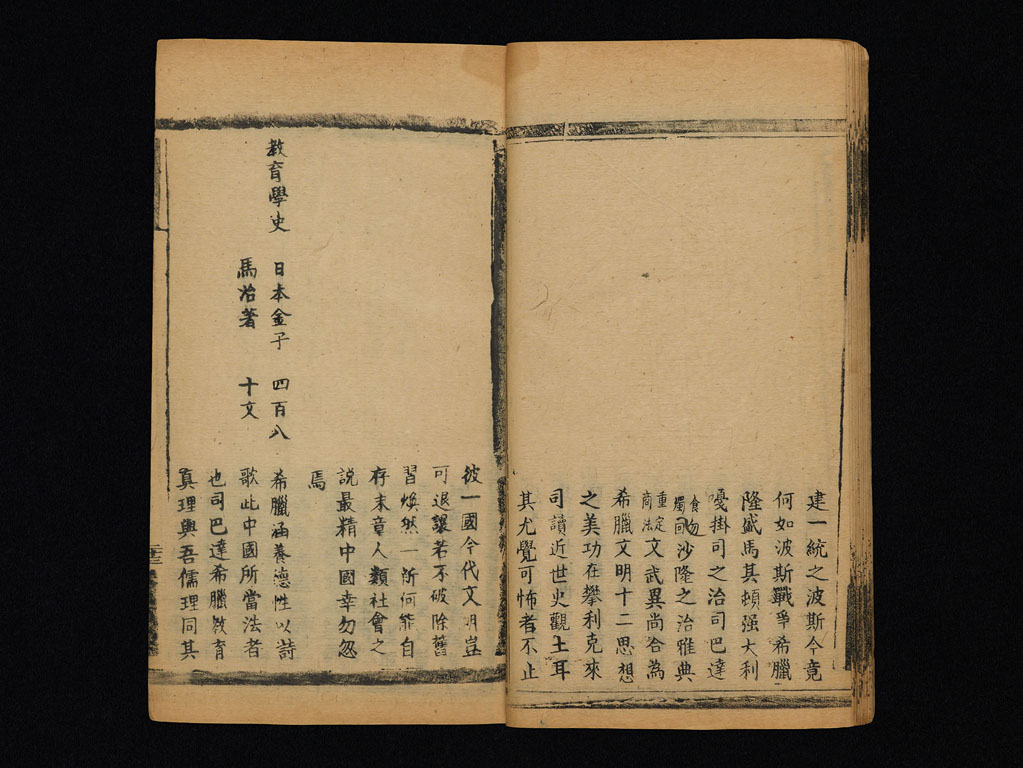 建一統之波斯今竟
何如波斯戰爭希臘
隆盛馬其頓强大利
嗄掛司之治司巴達
食物
獨
沙隆之治雅典
重定
商法
文武異尚合為
希臘文明十二思想
之美功在攀利克來
司讀近世史觀土耳
其尤覺可怖者不止
彼一國今代文明豈
可退讓若不破除舊
習煥然一新何能自
存末章人類社會之
說最精中國幸勿忽
焉
教育學史
日本金子
馬治著
四百八
十文
希臘涵養德性以詩
歌此中國所當法者
也司巴達希臘教育
真理與吾儒理同其